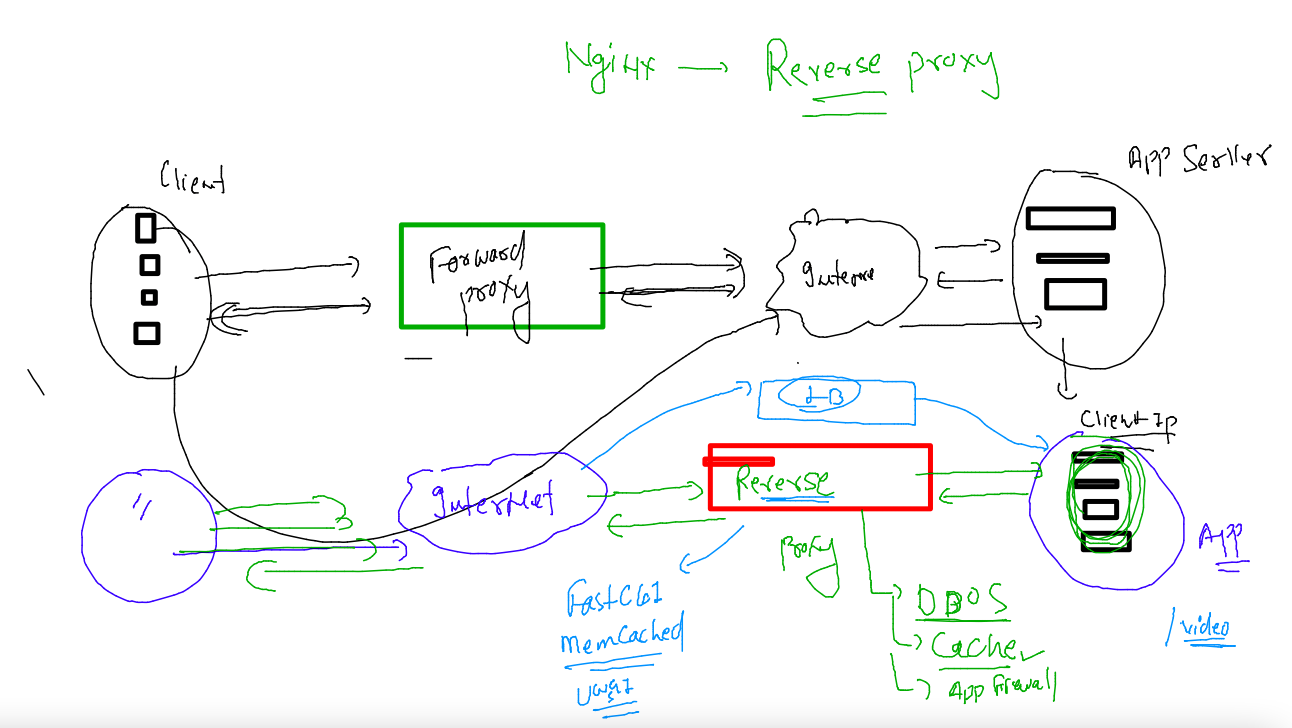 Nginx → Reverse proxy
Client
App Server
Forward
proxy
Interne
LB
Client Ip
Internet
Reverse
proxy
App
FastCGI
MemCached
uwsgi
DDOS
Cache
App firewall
/video